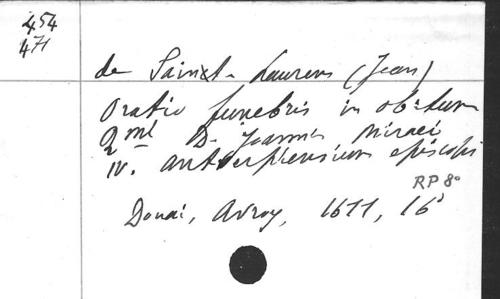 454
471
de Saint-Laurens (Jean)
Oratio funebris in obitum
D. Joannis Miraei
IV. antverpiensium episcopi
RP 8°
Douai, Avroy, 1611, 16°